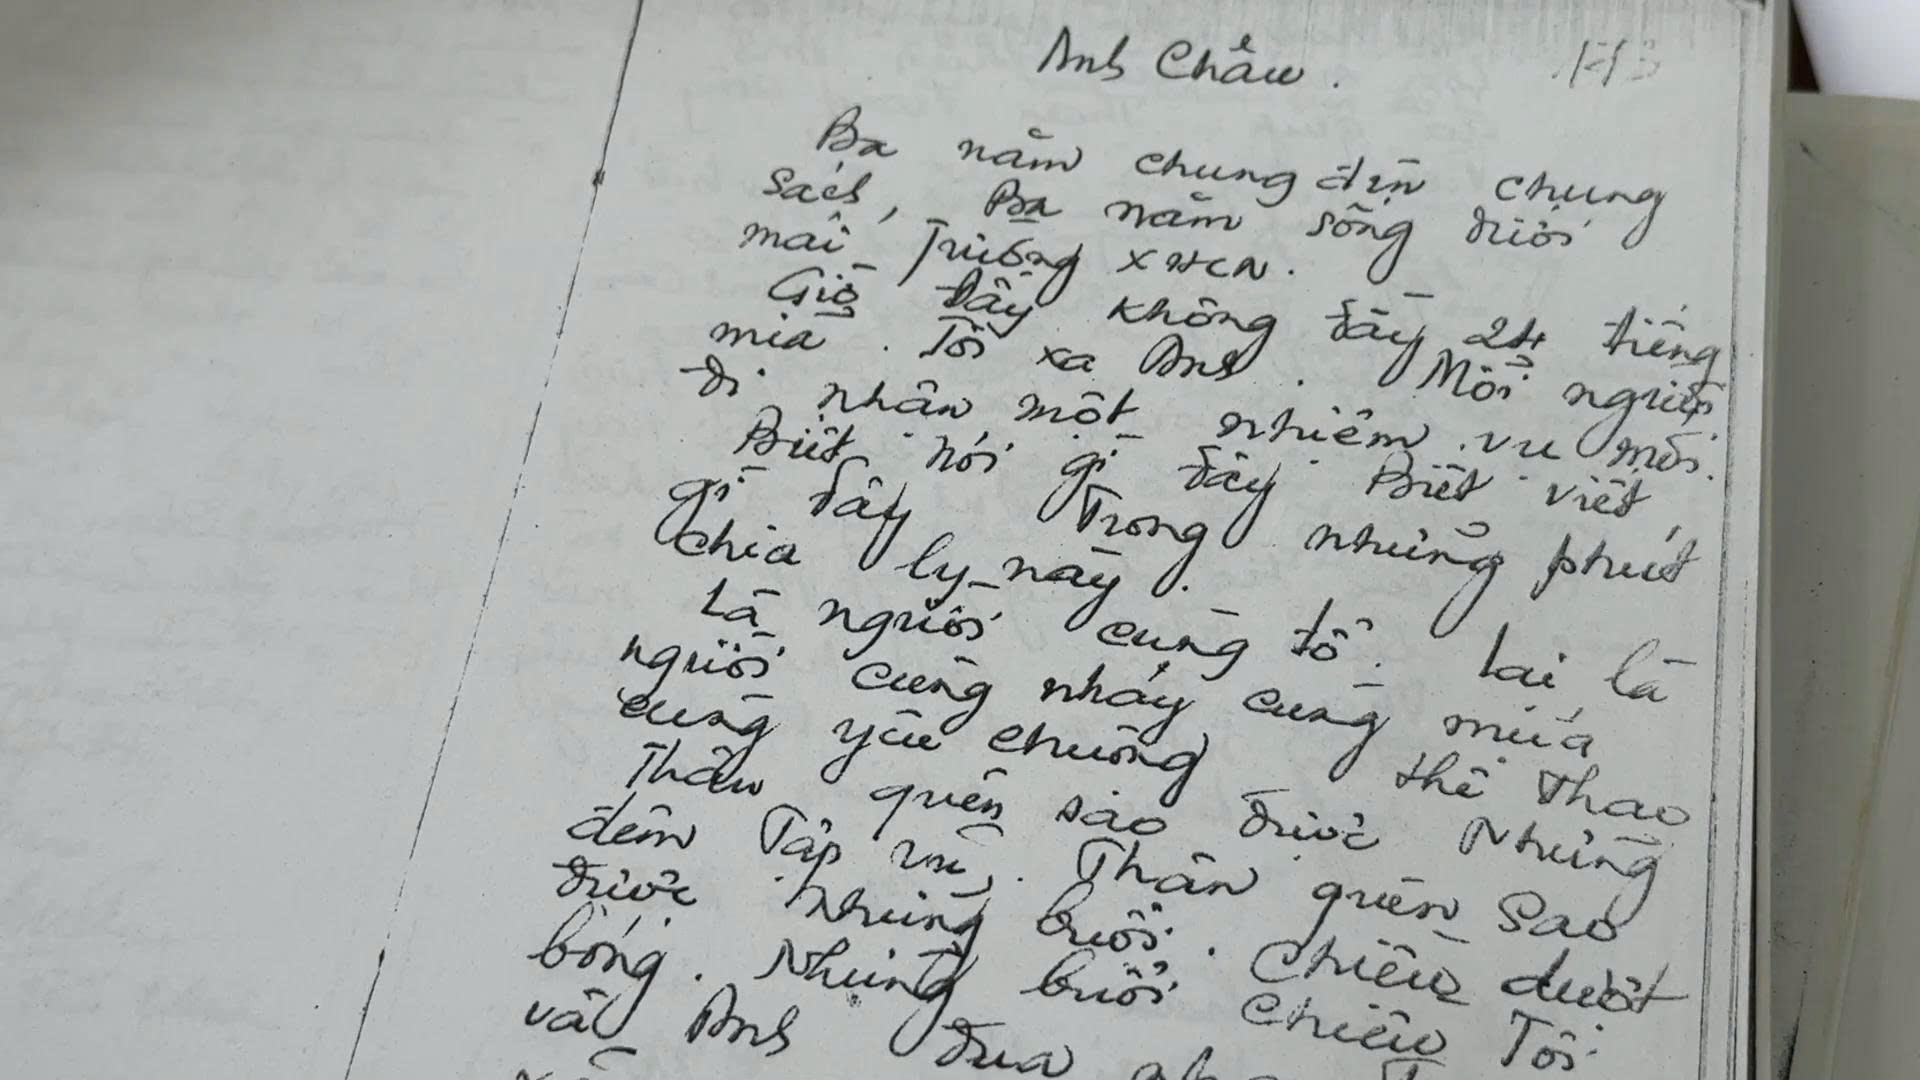 Anh Châu.
Ba năm chung đèn chung
sách, Ba năm sống dưới
mái Trường XHCN.
Giờ đây không đầy 24 tiếng
nữa. Tôi xa Anh. Mỗi người
đi nhận một nhiệm vụ mới.
Biết nói gì đây Biết viết
gì đây Trong những phút
chia ly này.
Là người cùng tổ. Lại là
người cùng nhảy cùng múa
cùng yêu chuộng thể thao
Thân quên sao được Những
đêm Tập vũ. Thân quên Sao
được Những buổi chiều dượt
bóng. Những buổi chiều Tôi
và Anh đưa